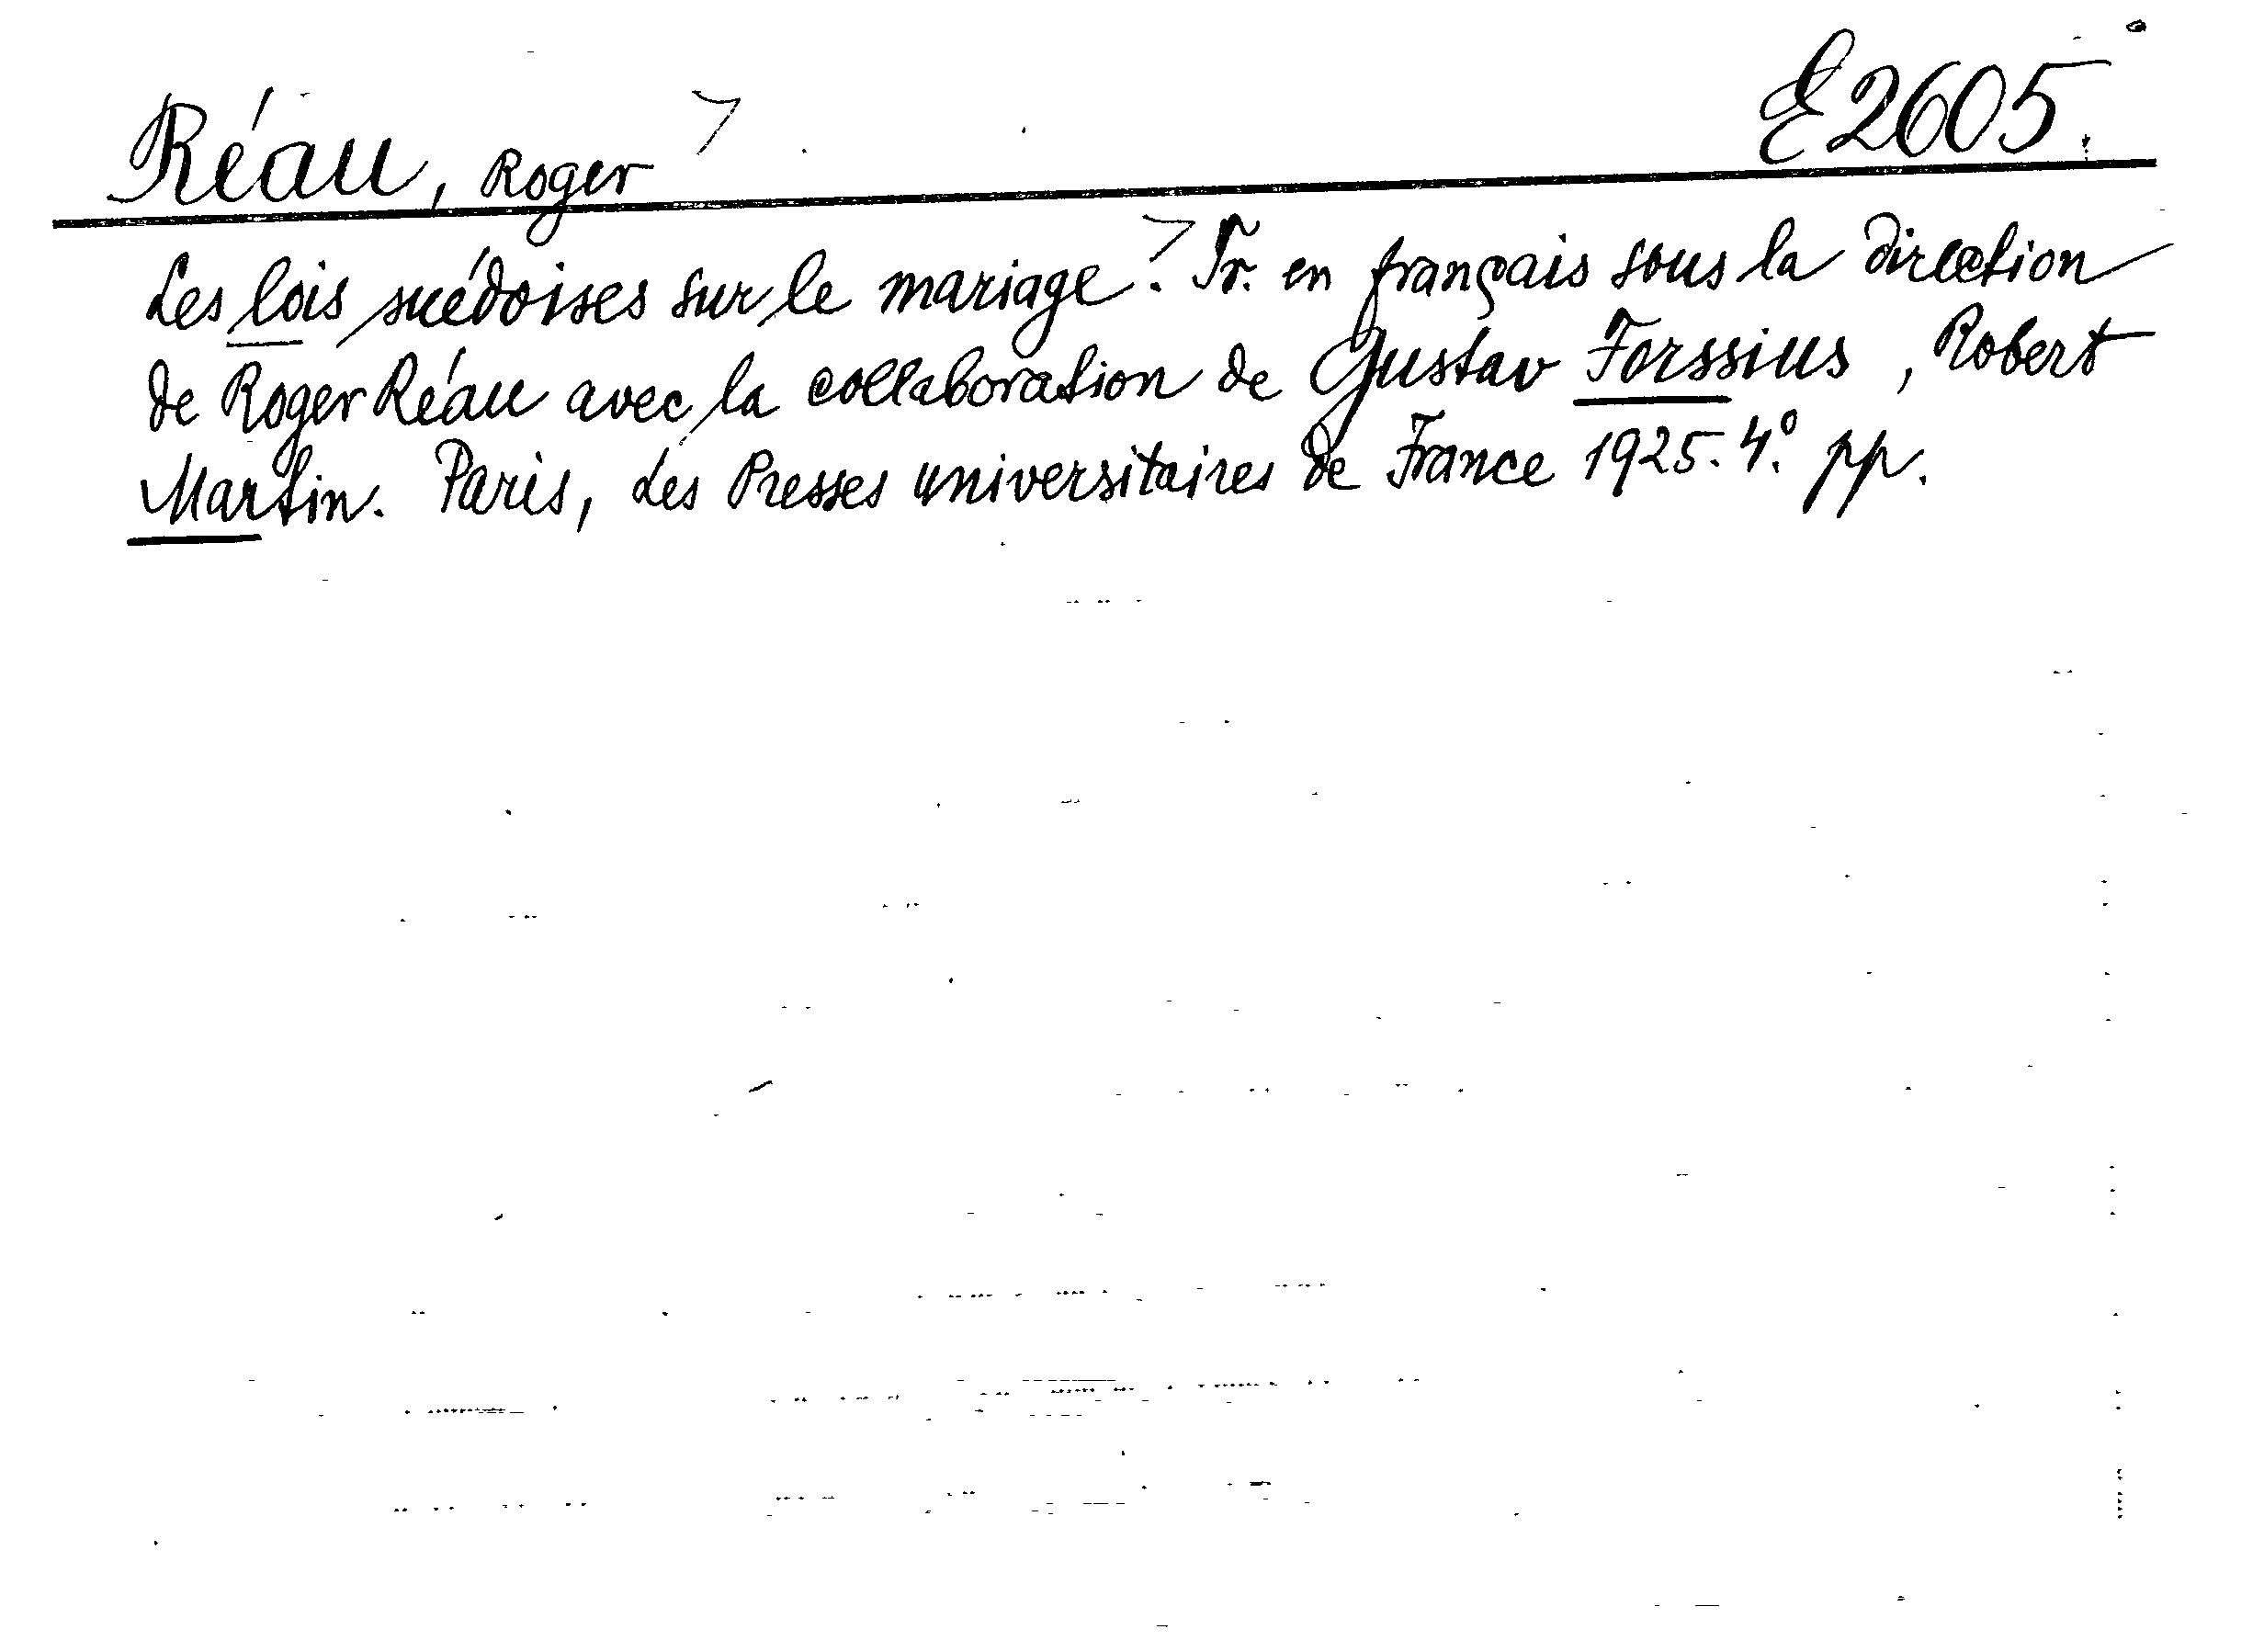 Réau, Roger E2605.
Les lois suédoises sur le mariage. Tr. en français sous la direction
de Roger Réau avec la collaboration de Gustav Forssius, Robert
Martin. Paris, Les Presses universitaires de France 1925. 4:o pp.